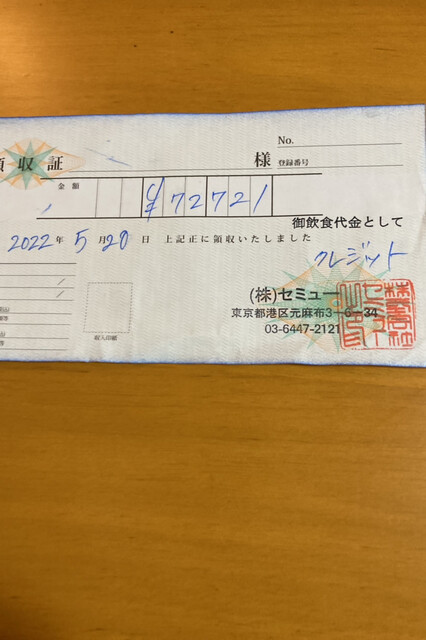 領収証
様
No.
登録番号
金額
¥72721
御飲食代金として
2022年 5月20日 上記正に領収いたしました
クレジット
(株)セミュー
東京都港区元麻布3-6-34
03-6447-2121
収入印紙